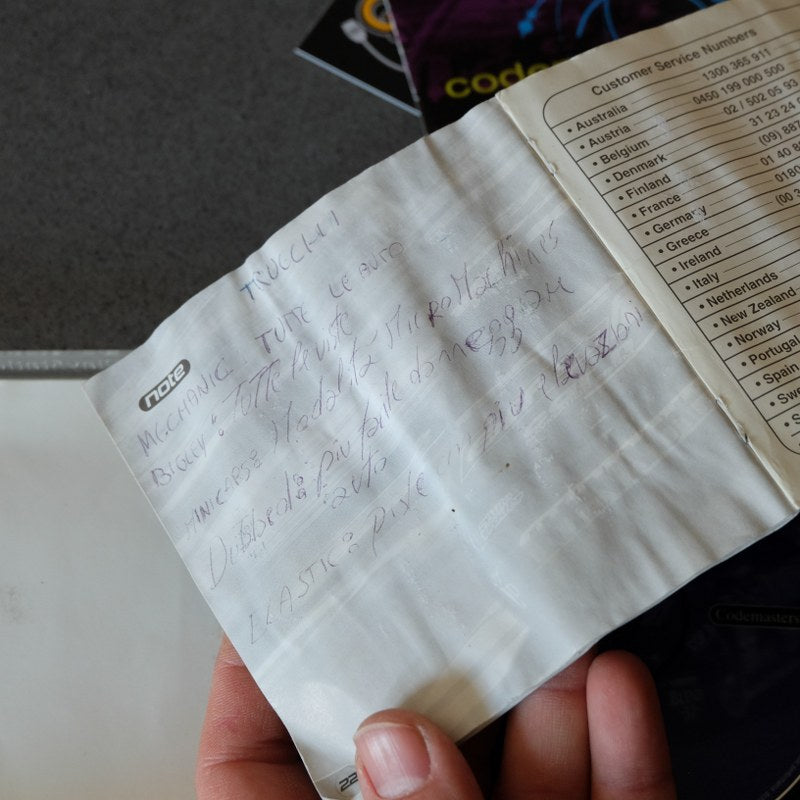 code
note
TRUCCHI
MECHANIC TUTTE LE AUTO
BIGLEY: Tutte le piste
MINICARS: Modalità MicroMachines
più facile danneggiare
auto
ELASTIC: Piste con più elevazioni
22
Customer Service Numbers
• Australia 1300 365 911
• Austria 0450 199 000 500
• Belgium 02 / 502 05 93
• Denmark 31 23 24
• Finland (09) 887
• France 01 40 8
• Germany 0180
• Greece (00 3
• Ireland
• Italy
• Netherlands
• New Zealand
• Norway
• Portugal
• Spain
• Swe
• S
Codemasters